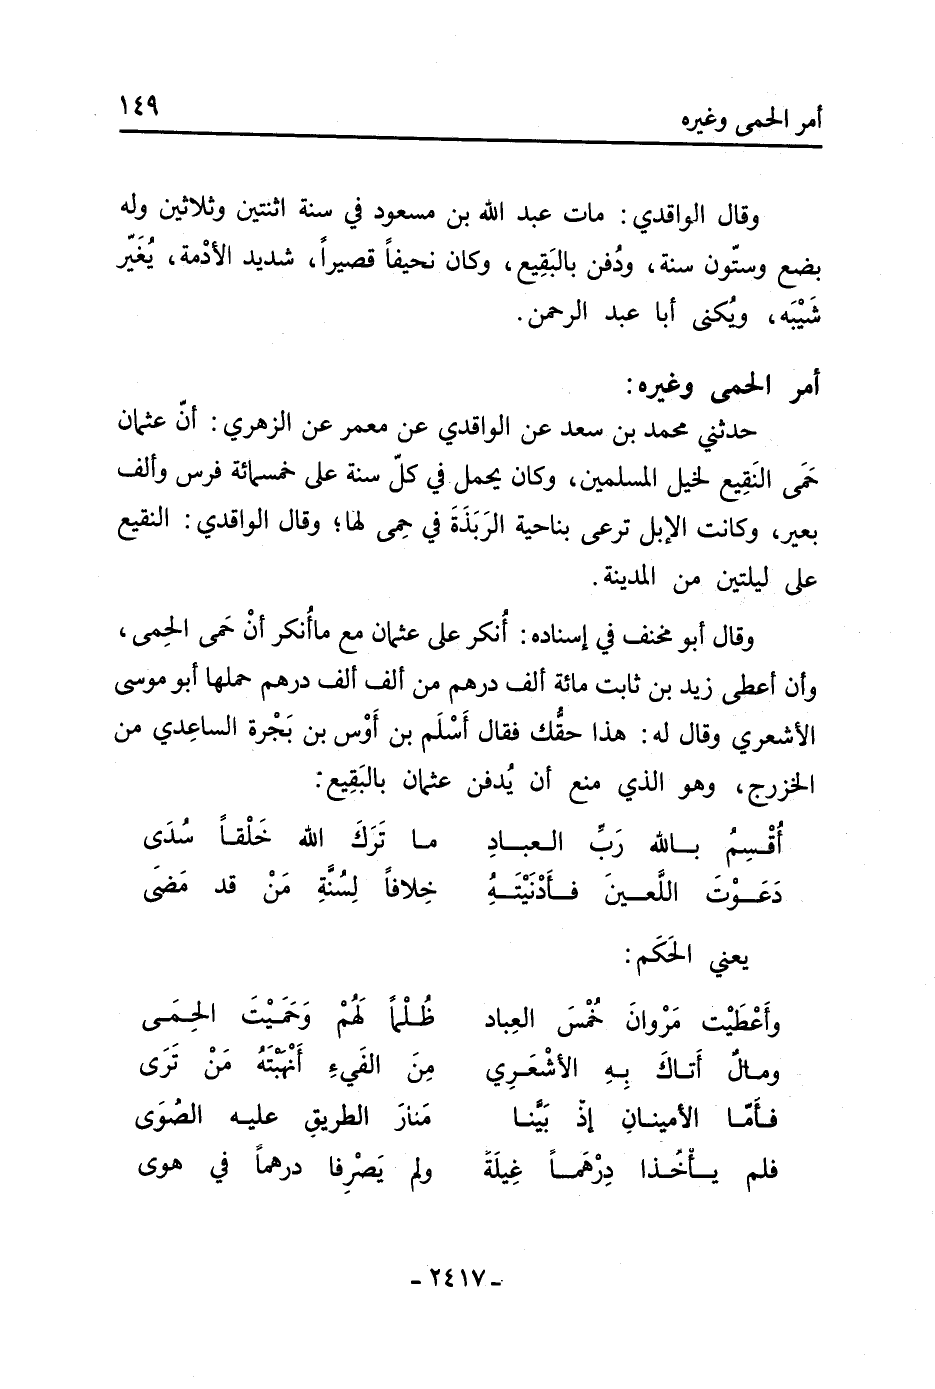 أمر الحمى وغيره ١٤٩
وقال الواقدي: مات عبد الله بن مسعود في سنة اثنتين وثلاثين وله
بضع وستّون سنة، ودُفن بالبَقِيع، وكان نحيفاً قصيراً، شديد الأدْمة، يُغَيّر
شَيْبَه، ويُكنى أبا عبد الرحمن.
أمر الحمى وغيره:
حدثني محمد بن سعد عن الواقدي عن معمر عن الزهري: أنّ عثمان
حَمَى النَقِيع لخيل المسلمين، وكان يحمل في كلّ سنة على خمسمائة فرس وألف
بعير، وكانت الإبل ترعى بناحية الرَبَذَةَ في حِمى لها؛ وقال الواقدي: النقيع
على ليلتين من المدينة.
وقال أبو مخنف في إسناده: أُنكر على عثمان مع ماأُنكر أنْ حَمى الحِمى،
وأن أعطى زيد بن ثابت مائة ألف درهم من ألف ألف درهم حملها أبو موسى
الأشعري وقال له: هذا حقُّك فقال أَسْلَم بن أَوْس بن بَجْرة الساعِدي من
الخزرج، وهو الذي منع أن يُدفن عثمان بالبَقِيع:
أُقْسِمُ بالله رَبِّ العبادِ ما تَرَكَ الله خَلْقاً سُدَى
دَعَوْتَ اللَّعينَ فأَدْنَيْتَهُ خِلافاً لِسُنَّةِ مَنْ قد مَضَى
يعني الحَكَم:
وأَعْطَيْت مَرْوانَ خُمْسَ العِباد ظُلْماً لَهُمْ وَحَمَيْتَ الحِمَى
ومالٌ أَتاكَ بِهِ الأشْعَرِي مِنَ الفَيءِ أَنْهَبْتَهُ مَنْ تَرَى
فأمّا الأمينانِ إذْ بَيَّنا مَنارَ الطريقِ عليه الصُوَى
فلم يأْخُذا دِرْهَماً غِيلَةً ولم يَصْرِفا درهماً في هوى
- ٢٤١٧ -